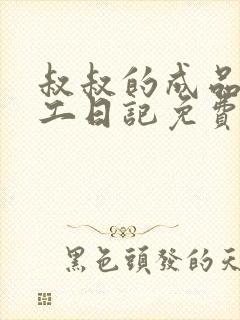 叔叔的成品
工日記免費
黑色頭發的天